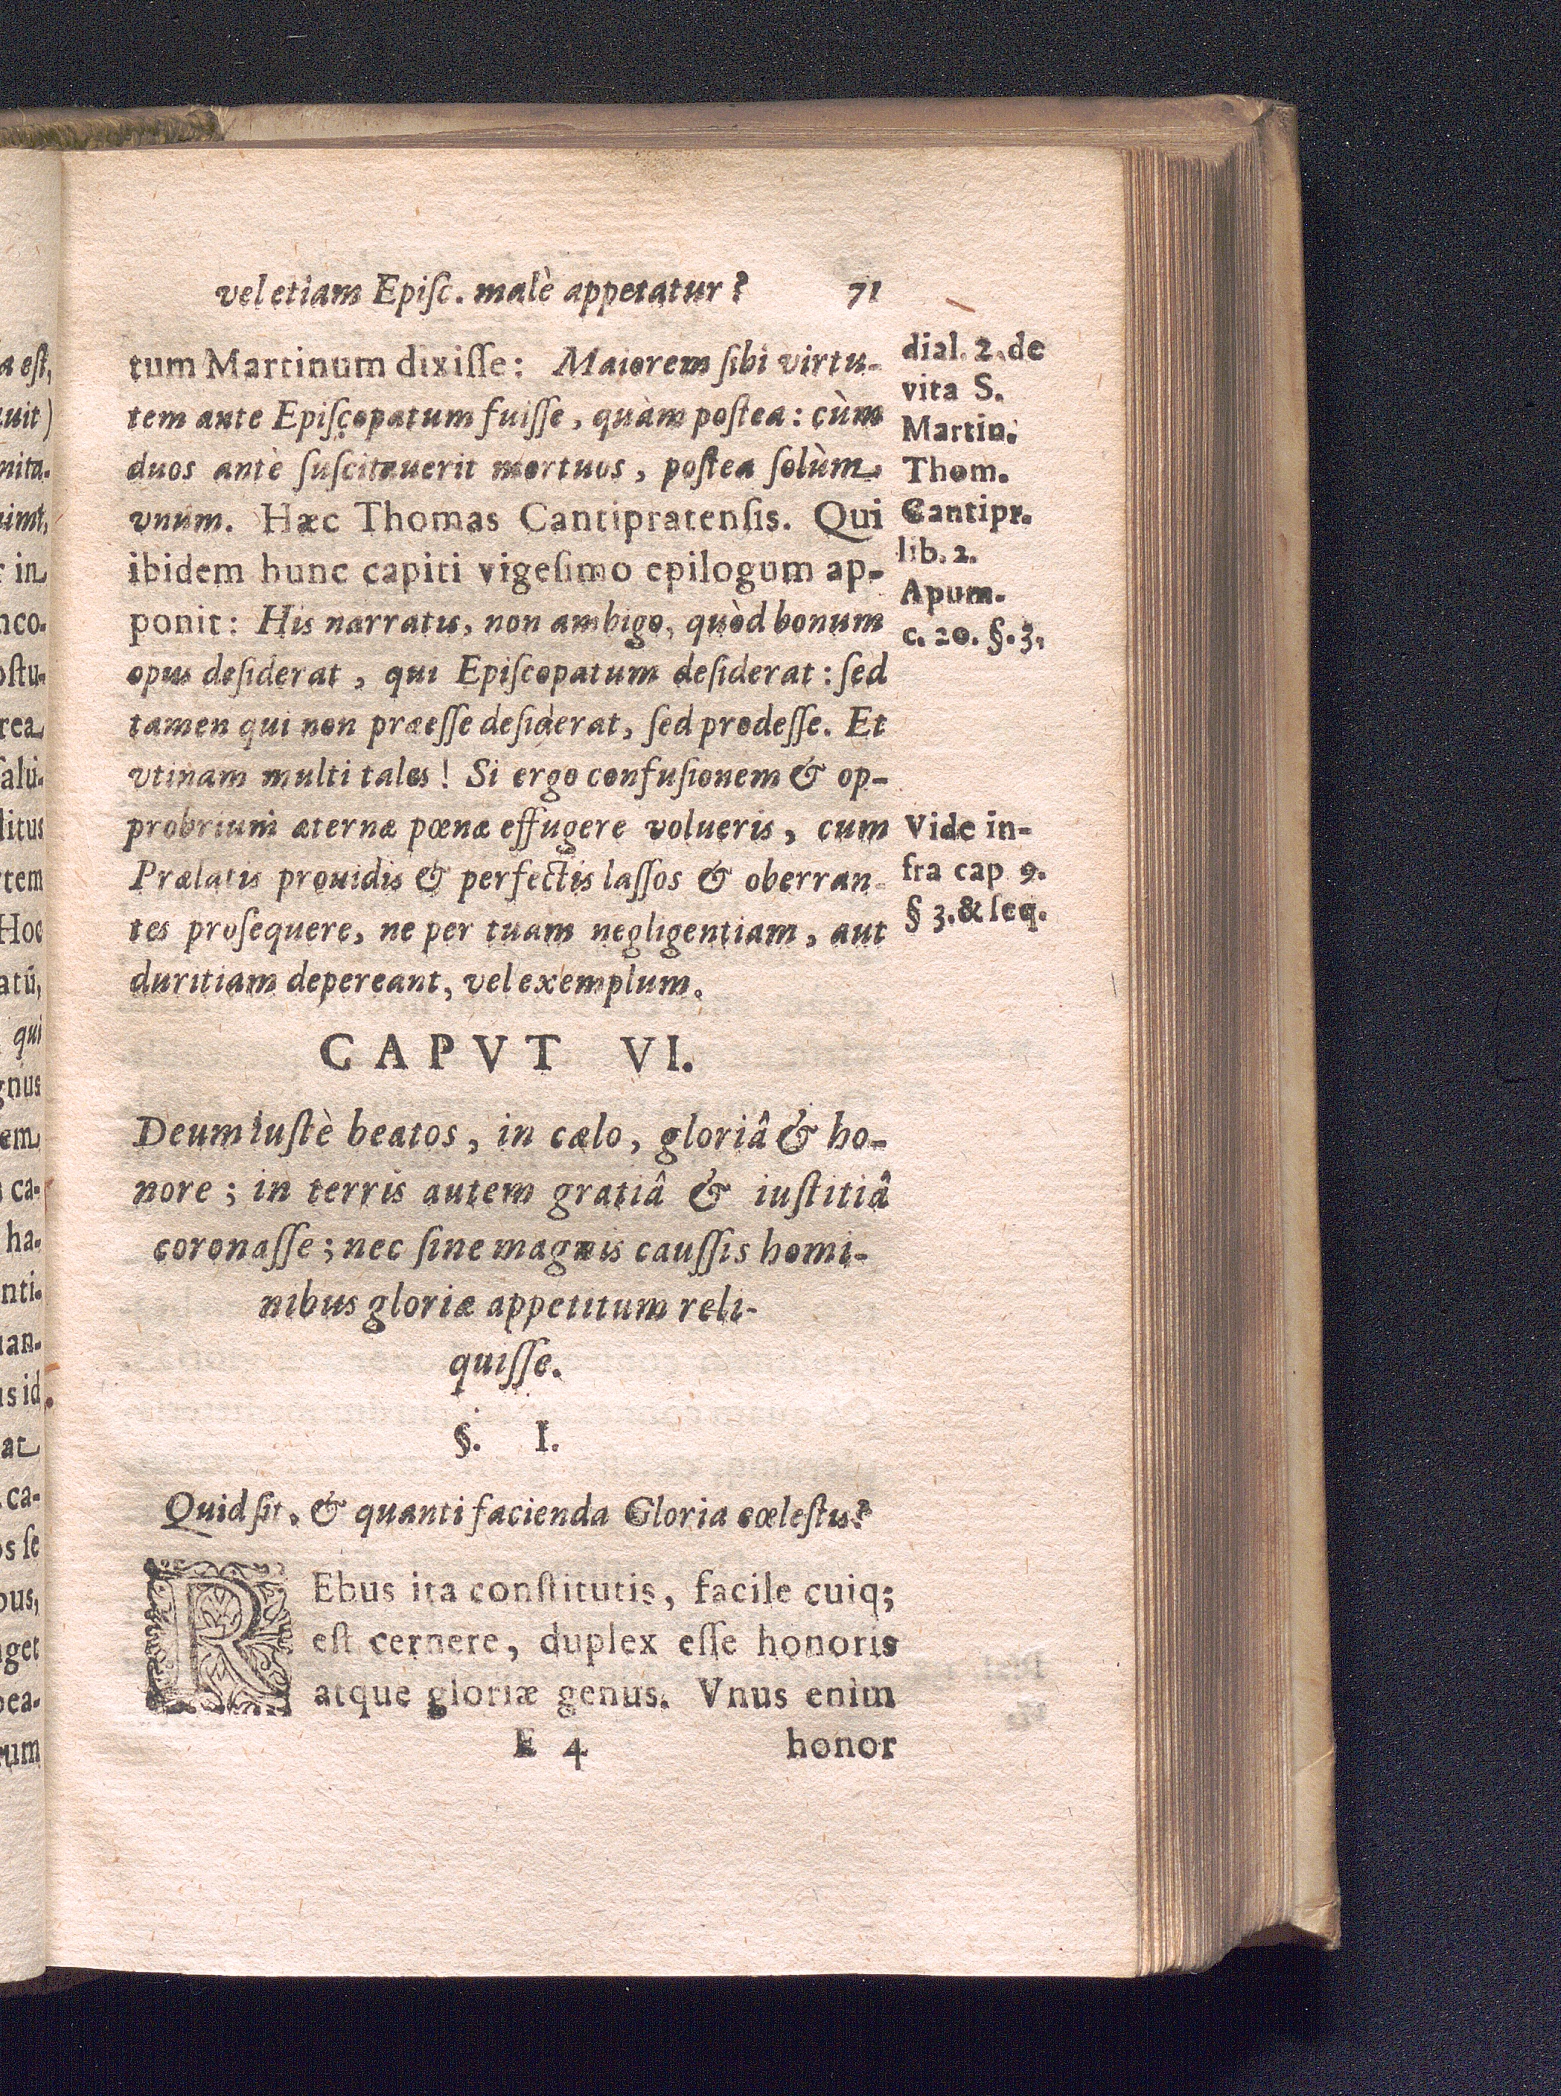 vel etiam Episc. malè appetatur? 71
tum Martinum dixisse: Maiorem sibi virtu-
tem ante Episcopatum fuisse, quàm postea: cùm
duos antè suscitauerit mortuos, postea solùm
vnum. Hæc Thomas Cantipratensis. Qui
ibidem hunc capiti vigesimo epilogum ap-
ponit: His narratis, non ambigo, quòd bonum
opus desiderat, qui Episcopatum desiderat: sed
tamen qui non præesse desiderat, sed prodesse. Et
vtinam multi tales! Si ergo confusionem & op-
probrium æternæ pœnæ effugere volueris, cum
Prælatis prouidis & perfectis lassos & oberran-
tes prosequere, ne per tuam negligentiam, aut
duritiam depereant, vel exemplum.
dial. 2. de
vita S.
Martin.
Thom.
Cantipr.
lib. 2.
Apum.
c. 20. §. 3.
Vide in-
fra cap 9.
§ 3. & seq.
CAPVT VI.
Deum iustè beatos, in cælo, gloriâ & ho-
nore; in terris autem gratiâ & iustitiâ
coronasse; nec sine magnis caussis homi-
nibus gloriæ appetitum reli-
quisse.
§. I.
Quid sit, & quanti facienda Gloria cœlestis?
REbus ita constitutis, facile cuiq;
est cernere, duplex esse honoris
atque gloriæ genus. Vnus enim
E 4 honor